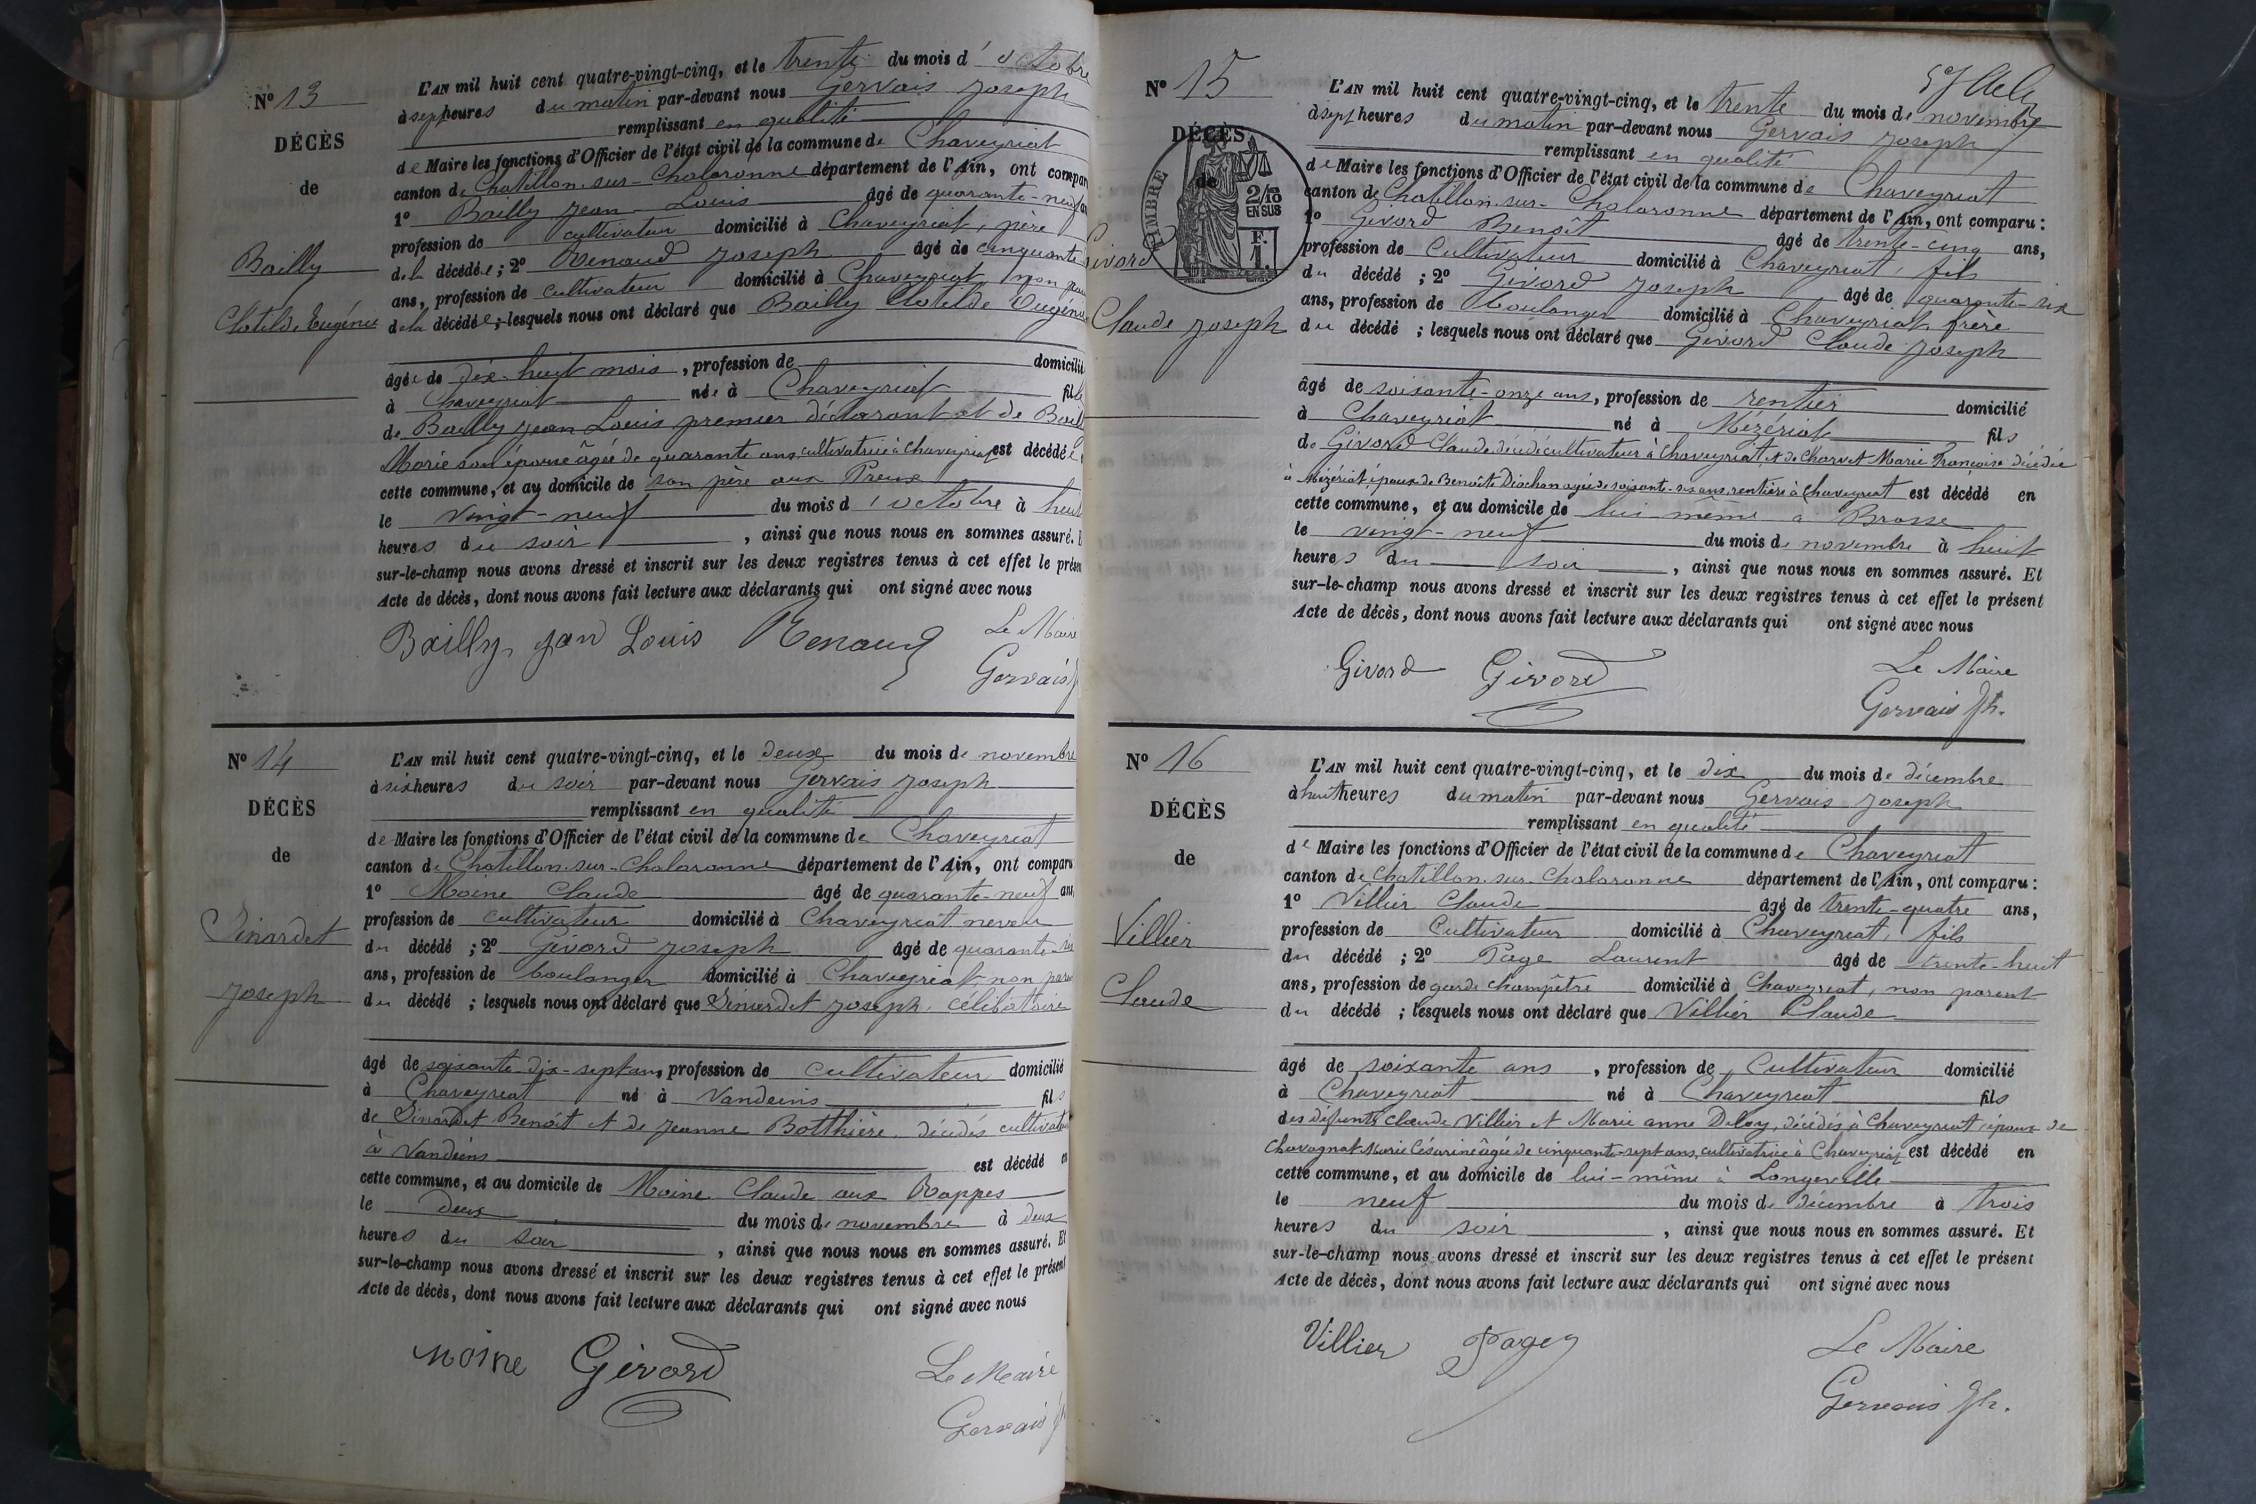 N° 13
DÉCÈS
de
Bailly
Clotilde Eugénie
L'AN mil huit cent quatre-vingt-cinq, et le trente du mois d'octobre
à sept heures du matin par-devant nous Gervais Joseph
remplissant en qualité
de Maire les fonctions d'Officier de l'état civil de la commune de Chaveyriat
canton de Chatillon-sur-Chalaronne département de l'Ain, ont compar
1° Bailly Jean Louis âgé de quarante-neuf an
profession de cultivateur domicilié à Chaveyriat, père
de la décédée; 2° Renaud Joseph âgé de cinquante
ans, profession de cultivateur domicilié à Chaveyriat, non par
de la décédée; lesquels nous ont déclaré que Bailly Clotilde Eugénie
âgée de dix-huit mois, profession de domicilié
à Chaveyriat née à Chaveyriat fille
de Bailly Jean Louis premier déclarant et de
Marie son épouse âgée de quarante ans, cultivatrice à Chaveyriat est décédée
cette commune, et au domicile de son père aux
le vingt-neuf du mois d'octobre à huit
heures du soir, ainsi que nous nous en sommes assuré. E
sur-le-champ nous avons dressé et inscrit sur les deux registres tenus à cet effet le présen
Acte de décès, dont nous avons fait lecture aux déclarants qui ont signé avec nous
Bailly jan Louis Renaud Le Maire
Gervais J
N° 14
DÉCÈS
de
Sinardet
Joseph
L'AN mil huit cent quatre-vingt-cinq, et le deux du mois de novembre
à six heures du soir par-devant nous Gervais Joseph
remplissant en qualité
de Maire les fonctions d'Officier de l'état civil de la commune de Chaveyriat
canton de Chatillon-sur-Chalaronne département de l'Ain, ont comparu
1° Moine Claude âgé de quarante-neuf ans,
profession de cultivateur domicilié à Chaveyriat neveu
du décédé; 2° Givord Joseph âgé de quarante-six
ans, profession de boulanger domicilié à Chaveyriat, non paren
du décédé; lesquels nous ont déclaré que Sinardet Joseph, célibataire
âgé de soixante-dix-sept ans, profession de cultivateur domicilié
à Chaveyriat né à Vandeins fils
de Sinardet Benoît et de Jeanne Botthière, décédés cultivateurs
à Vandeins est décédé en
cette commune, et au domicile de Moine Claude aux Rappes
le deux du mois de novembre à deux
heures du soir, ainsi que nous nous en sommes assuré. Et
sur-le-champ nous avons dressé et inscrit sur les deux registres tenus à cet effet le présent
Acte de décès, dont nous avons fait lecture aux déclarants qui ont signé avec nous
Moine Givord Le Maire
Gervais J
N° 15
DÉCÈS
de
TIMBRE
2/10
EN SUS
F.
1.
Givord
Claude Joseph
L'AN mil huit cent quatre-vingt-cinq, et le trente du mois de novembre
à sept heures du matin par-devant nous Gervais Joseph
remplissant en qualité
de Maire les fonctions d'Officier de l'état civil de la commune de Chaveyriat
canton de Chatillon-sur-Chalaronne département de l'Ain, ont comparu:
1° Givord Benoît âgé de trente-cinq ans,
profession de Cultivateur domicilié à Chaveyriat, fils
du décédé; 2° Givord Joseph âgé de quarante-six
ans, profession de boulanger domicilié à Chaveyriat, frère
du décédé; lesquels nous ont déclaré que Givord Claude Joseph
âgé de soixante-onze ans, profession de rentier domicilié
à Chaveyriat né à Mézériat fils
de Givord Claude, décédé cultivateur à Chaveyriat et de Charvet Marie Françoise décédée
à Mézériat, époux de Benoîte Diochon agée de soixante-six ans, rentière à Chaveyriat est décédé en
cette commune, et au domicile de lui même à Brosse
le vingt-neuf du mois de novembre à huit
heures du soir, ainsi que nous nous en sommes assuré. Et
sur-le-champ nous avons dressé et inscrit sur les deux registres tenus à cet effet le présent
Acte de décès, dont nous avons fait lecture aux déclarants qui ont signé avec nous
Givord Givord Le Maire
Gervais Jh.
N° 16
DÉCÈS
de
Villier
Claude
L'AN mil huit cent quatre-vingt-cinq, et le dix du mois de décembre
à huit heures du matin par-devant nous Gervais Joseph
remplissant en qualité
de Maire les fonctions d'Officier de l'état civil de la commune de Chaveyriat
canton de Chatillon-sur-Chalaronne département de l'Ain, ont comparu:
1° Villier Claude âgé de trente-quatre ans,
profession de Cultivateur domicilié à Chaveyriat, fils
du décédé; 2° Page Laurent âgé de trente-huit
ans, profession de garde champêtre domicilié à Chaveyriat, non parent
du décédé; lesquels nous ont déclaré que Villier Claude
âgé de soixante ans, profession de Cultivateur domicilié
à Chaveyriat né à Chaveyriat fils
des défunts Claude Villier et Marie anne Deloy, décédés à Chaveyriat, époux de
Chavagnat Marie Césarine âgée de cinquante-sept ans, cultivatrice à Chaveyriat est décédé en
cette commune, et au domicile de lui-même à Longeville
le neuf du mois de décembre à trois
heures du soir, ainsi que nous nous en sommes assuré. Et
sur-le-champ nous avons dressé et inscrit sur les deux registres tenus à cet effet le présent
Acte de décès, dont nous avons fait lecture aux déclarants qui ont signé avec nous
Villier Page Le Maire
Gervais Jh.